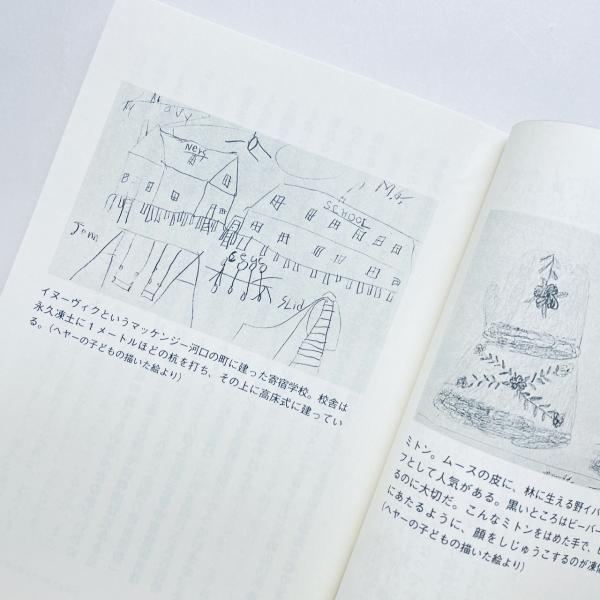 Navy
Ners
M.S.
SCHOOL
Jomi
SLid
イヌーヴィクというマッケンジー河口の町に建った寄宿学校。校舎は
永久凍土に1メートルほどの杭を打ち、その上に高床式に建ってい
る。(ヘヤーの子どもの描いた絵より)
ミトン。ムースの皮に、林に生える野イバ
フとして人気がある。黒いところはビーバー
るのに大切だ。こんなミトンをはめた手で、
にあたるように、顔をしじゅうこするのが凍傷
(ヘヤーの子どもの描いた絵より)